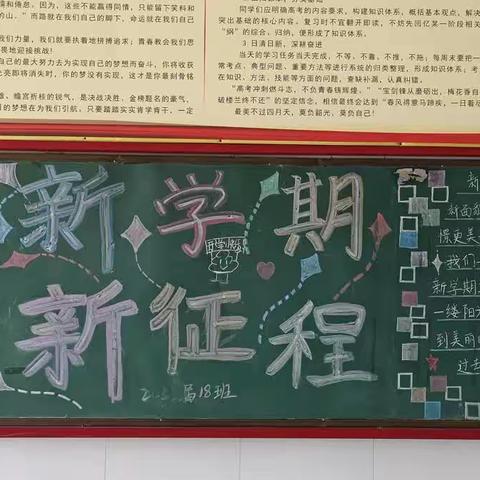 倦怠。因为,这些不能赢得同情,只能留下笑料和
山。”而路就在我们自己的脚下,命运就在我们自己
我们力量,我们就要执着地拼搏追求;青春教会我们思
畏地迎接挑战!
自己的最大努力去为实现自己的梦想而奋斗,你将收获
光亮即将消失时,你的梦没有实现,这才是你最刻骨铭
是决战决胜、金榜题名的豪气,
的春天在为我们引航,只要踏踏实实肯学肯干,一定
同学们应明确高考的内容要求,构建知识体系,概括基本观点,解决
突出基础的核心内容。复习时不宜翻开即读,不妨先回忆某一阶段相关
的综合、归纳,便形成了知识体系。
3 日清日新,深耕奋进
当天的学习任务当天完成,不等,不靠,不推,不拖;每周末要把一
常考点、典型问题、重要方法等进行系统的归类整理,形成知识体系;考
在知识、方法、技能等方面的问题,查缺补漏,认真纠错。
“高考冲刺燃斗志,不负青春铸辉煌。”“宝剑锋从磨砺出,梅花香自
破楼兰终不还”的坚定信念,相信最终会达到“春风得意马蹄疾,一日看尽
最美不过四月天,莫负韶光,莫负自己!
新学期
新征程
开学快乐
届18班
新
新面貌
憬更美
我们一
新学期
一缕阳
到美丽
过去